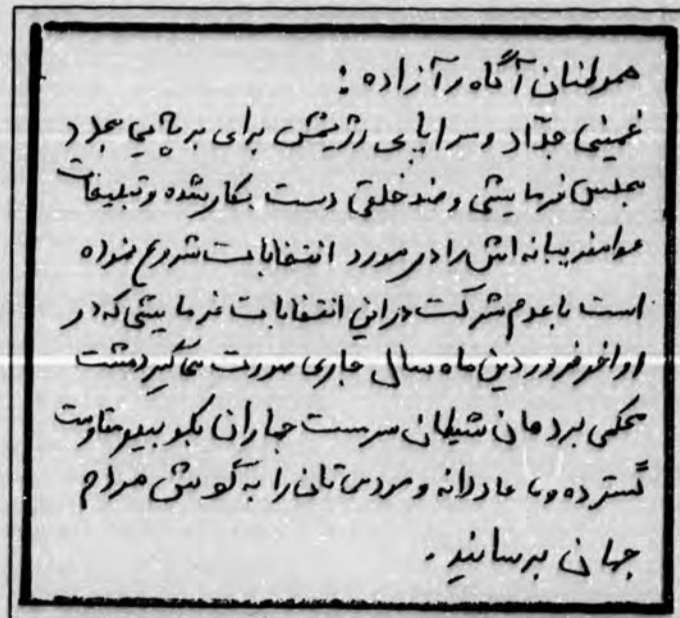 هموطنان آگاه و آزاده :
خمینی جلّاد و سراپای رژیمش برای برپایی مجدد
مجلس فرمایشی و ضد خلقی دست بکار شده و تبلیغات
عوامفریبانه اش را در مورد انتخابات شروع نموده
است با عدم شرکت در این انتخابات فرمایشی که در
اواخر فروردین ماه سال جاری صورت می گیرد مشت
محکمی بر دهان شیطان سرست جماران بکوبید و مقاومت
گسترده و عادلانه و مردمی تان را به گوش مردم
جهان برسانید .